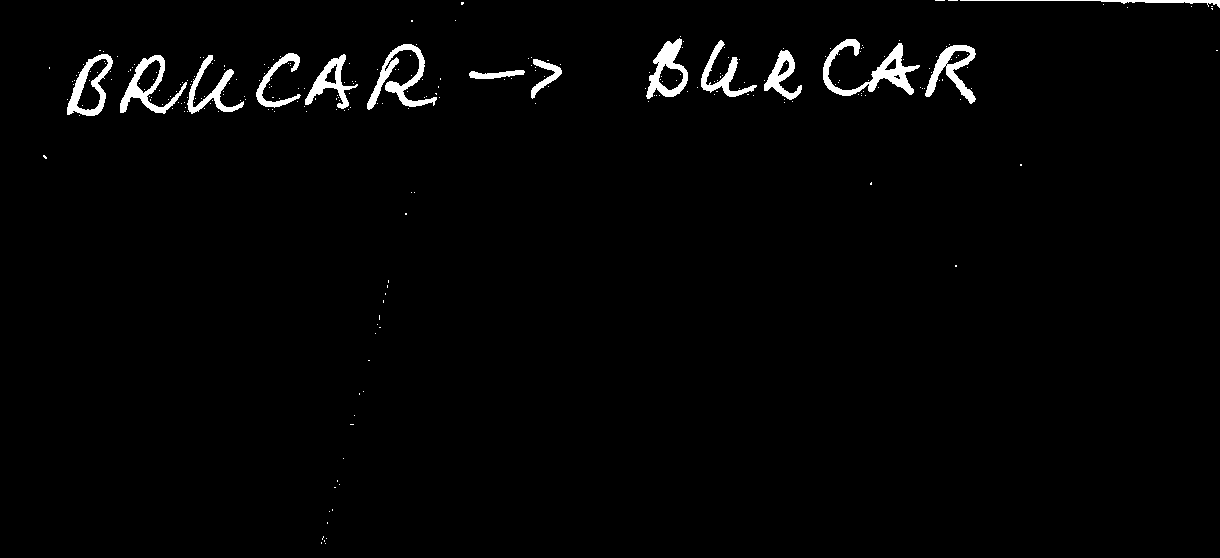 BRUCAR → BURCAR